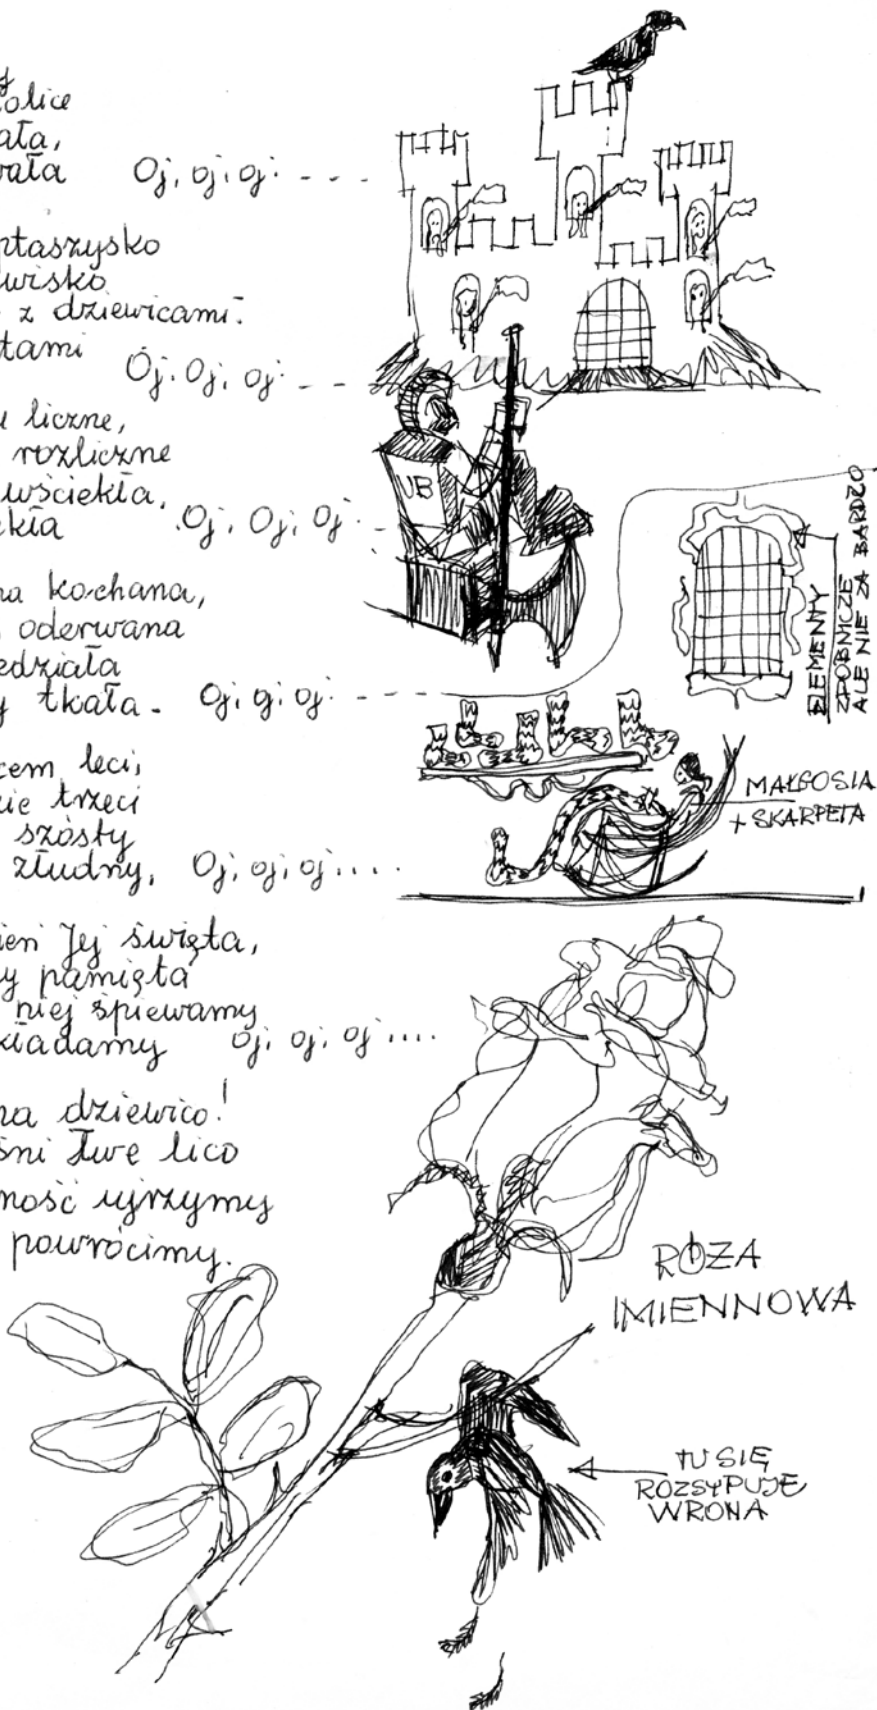 olice
ała,
wała Oj, oj, oj. - - - -
ptaszysko
wisko
z dziewicami.
tami Oj. Oj, oj. - - -
u liczne,
rozliczne
wściekła,
ekła Oj, Oj, Oj. -
na kochana,
oderwana
edziała
y tkała. Oj, oj, oj. - - - -
cem leci,
cie trzeci
szósty
złudny, Oj, oj, oj....
ień Jej święta,
y pamięta
niej śpiewamy
kładamy Oj. oj, oj....
na dziewico!
śni Twe lico
ność ujrzymy
powrócimy.
UB
ELEMENTY
ZDOBNICZE
ALE NIE ZA BARDZO
MAŁGOSIA
+ SKARPETA
RÓŻA
IMIENNOWA
TU SIĘ
ROZSYPUJE
WRONA